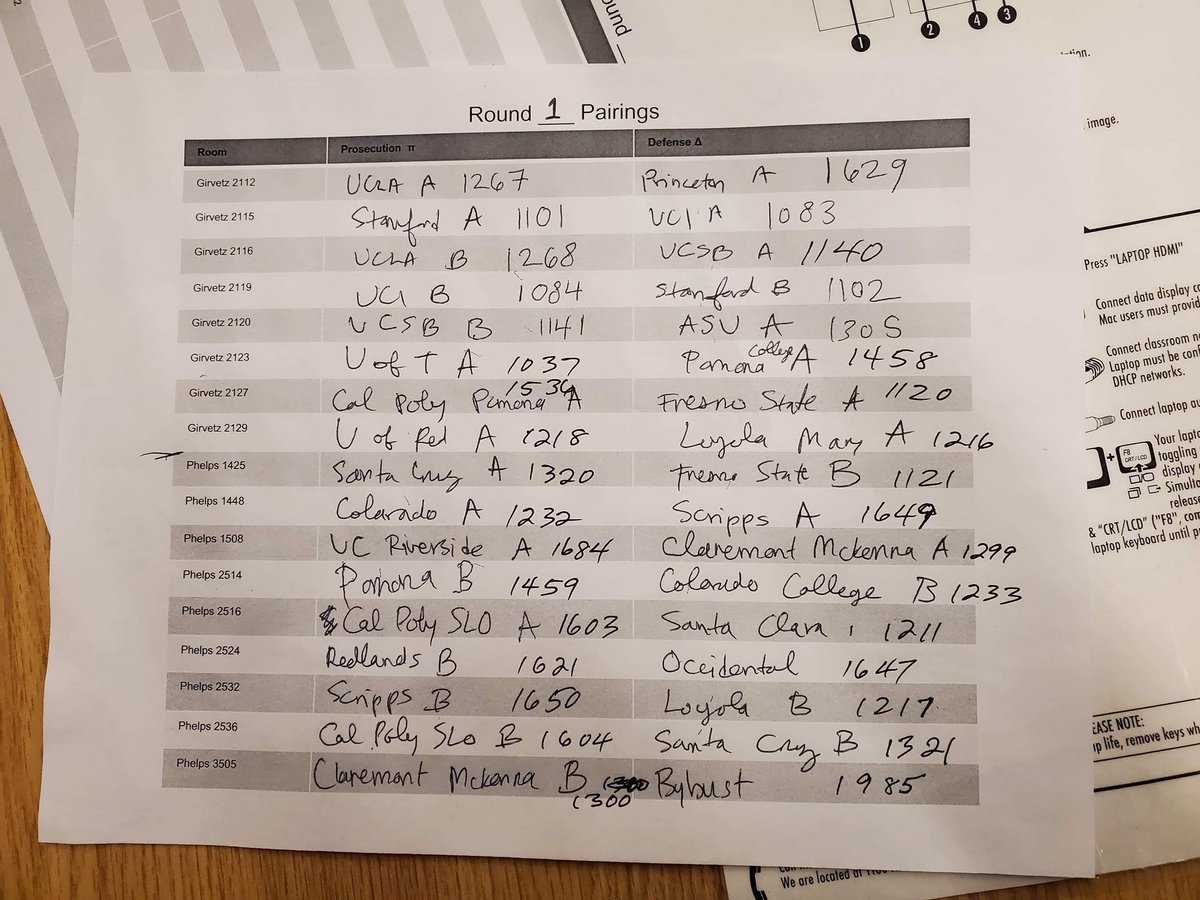 ound
1 2 4 3
ation.
image.
Round 1 Pairings
Room Prosecution π Defense Δ
Girvetz 2112 UCLA A 1267 Princeton A 1629
Girvetz 2115 Stanford A 1101 UCI A 1083
Girvetz 2116 UCLA B 1268 UCSB A 1140
Girvetz 2119 UCI B 1084 Stanford B 1102
Girvetz 2120 UCSB B 1141 ASU A 1305
Girvetz 2123 U of T A 1037 Pomona College A 1458
Girvetz 2127 Cal Poly Pomona A 1534 Fresno State A 1120
Girvetz 2129 U of Red A 1218 Loyola Mary A 1216
Phelps 1425 Santa Cruz A 1320 Fresno State B 1121
Phelps 1448 Colorado A 1232 Scripps A 1649
Phelps 1508 UC Riverside A 1684 Claremont Mckenna A 1299
Phelps 2514 Pomona B 1459 Colorado College B 1233
Phelps 2516 Cal Poly SLO A 1603 Santa Clara 1211
Phelps 2524 Redlands B 1621 Occidental 1647
Phelps 2532 Scripps B 1650 Loyola B 1217
Phelps 2536 Cal Poly SLO B 1604 Santa Cruz B 1321
Phelps 3505 Claremont Mckenna B 1300 Bybust 1985
Press "LAPTOP HDMI"
Connect data display
Mac users must provid
Connect classroom
Laptop must be
DHCP networks.
Connect laptop au
Your lapto
F8 CRT/LCD
toggling
display
Simulta
release
& "CRT/LCD" ("F8", com
laptop keyboard until p
EASE NOTE:
life, remove keys wh
We are located at